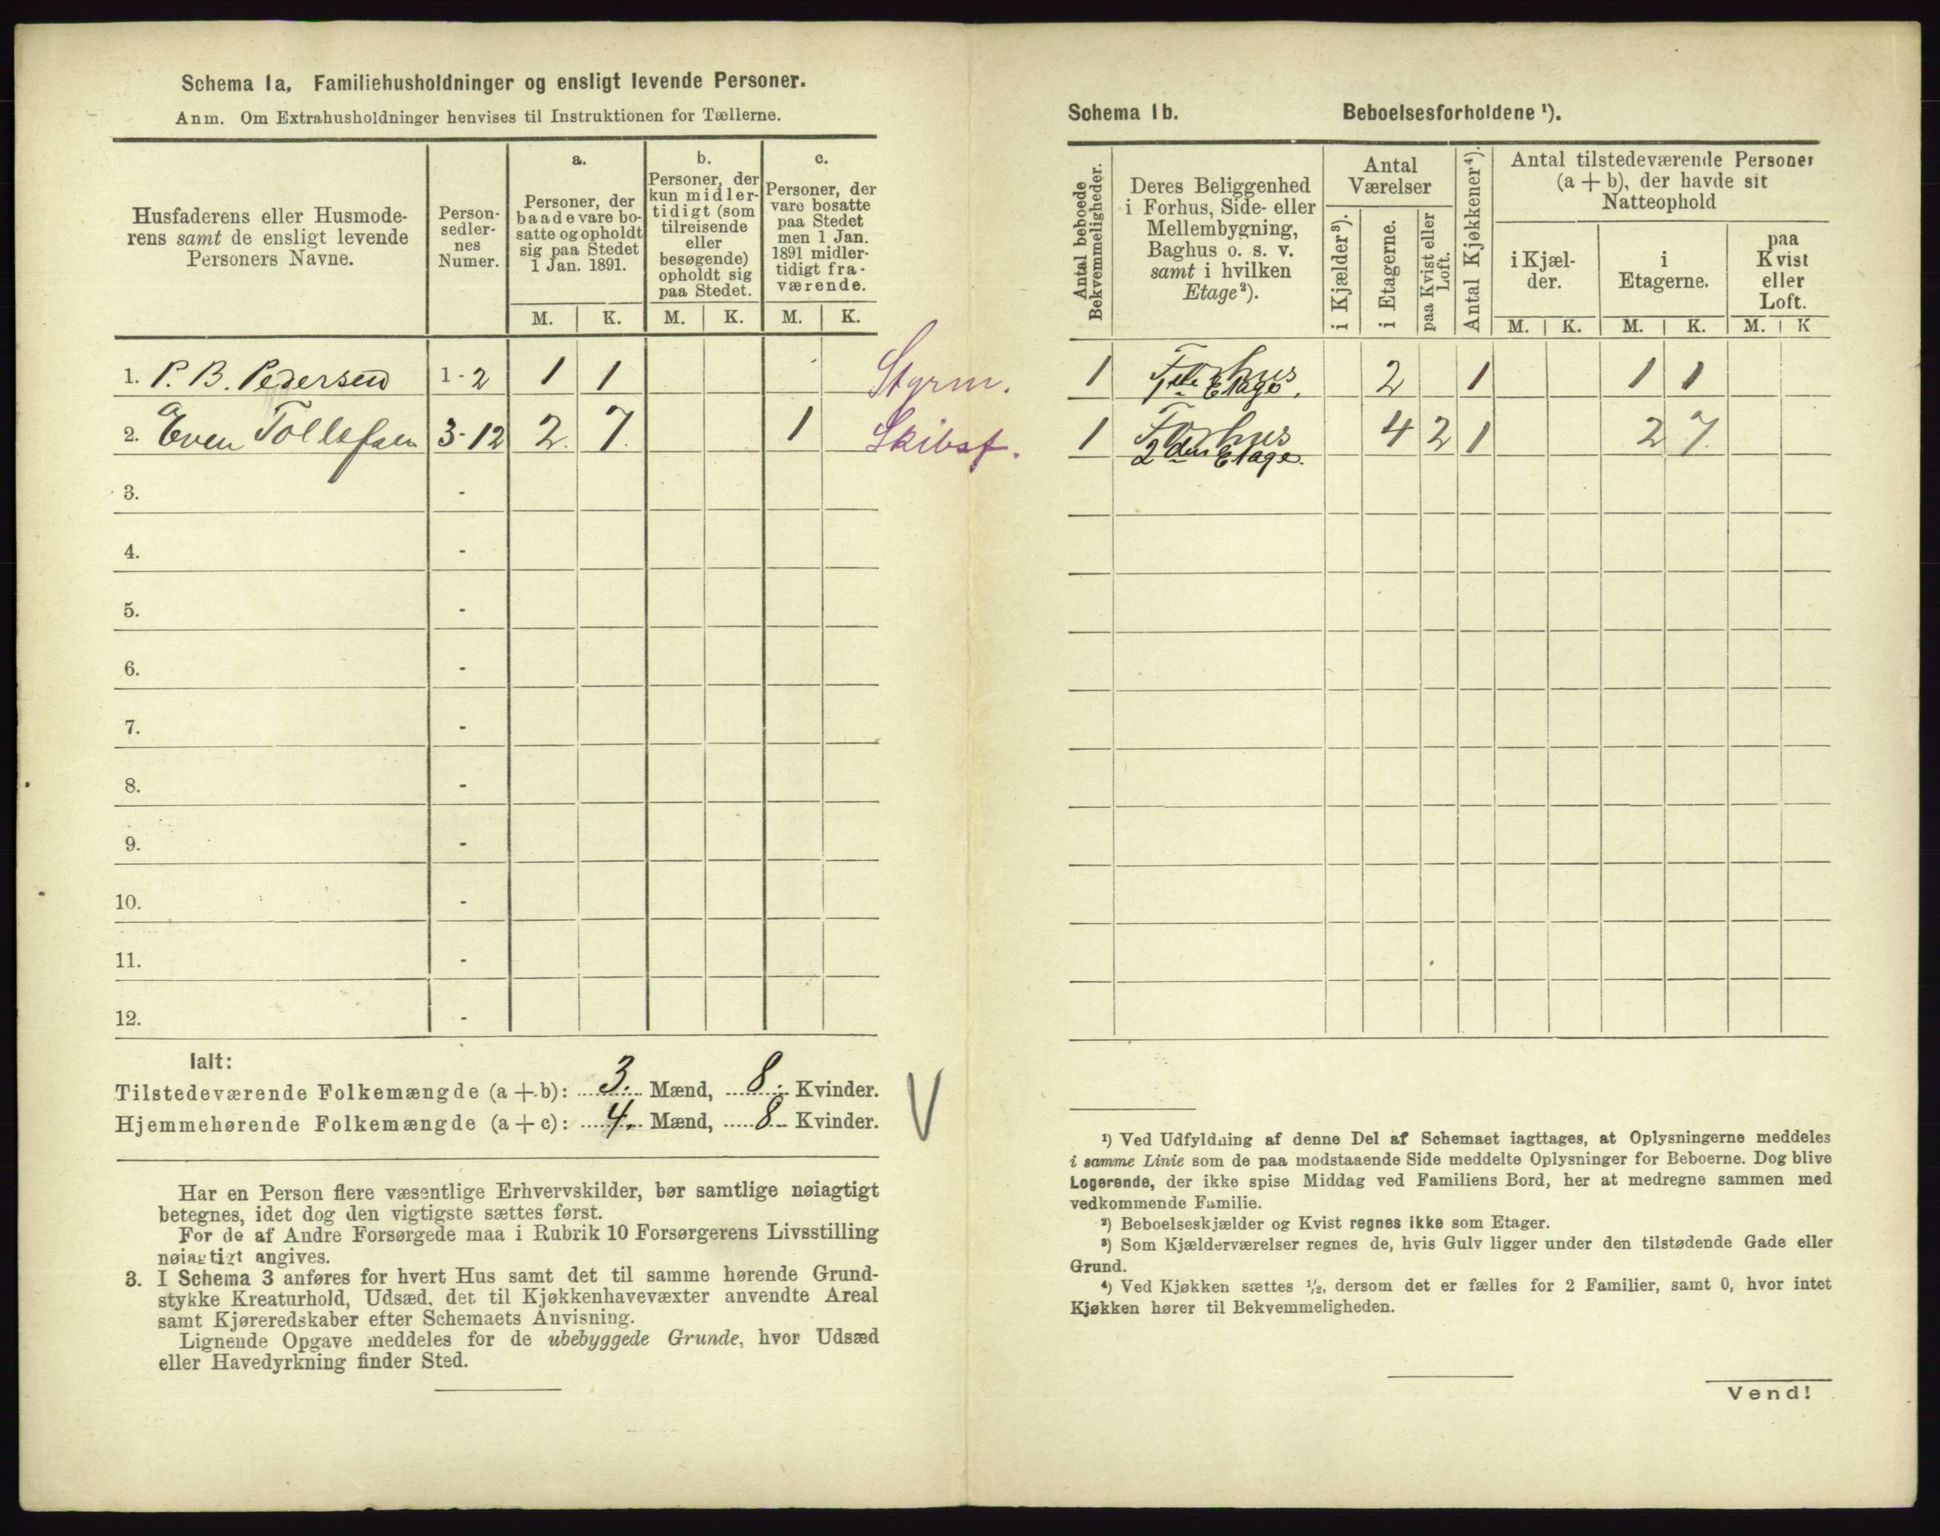 Schema 1a. Familiehusholdninger og ensligt levende Personer.
Anm. Om Extrahusholdninger henvises til Instruktionen for Tællerne.
Husfaderens eller Husmode-
rens samt de ensligt levende
Personers Navne.
Person-
sedler-
nes
Numer.
a.
Personer, der
baade vare bo-
satte og opholdt
sig paa Stedet
1 Jan. 1891.
b.
Personer, der
kun midler-
tidigt (som
tilreisende
eller
besøgende)
opholdt sig
paa Stedet.
c.
Personer, der
vare bosatte
paa Stedet
men 1 Jan.
1891 midler-
tidigt fra-
værende.
M. K. M. K. M. K.
1. P. B. Pedersen 1-2 1 1 Styrm.
2. Even Tollefsen 3-12 2. 7. 1 Skibsf.
3. -
4. -
5. -
6. -
7. -
8. -
9. -
10. -
11. -
12. -
Ialt:
Tilstedeværende Folkemængde (a+b): 3. Mænd, 8. Kvinder.
Hjemmehørende Folkemængde (a+c): 4. Mænd, 8 Kvinder.
V
Har en Person flere væsentlige Erhvervskilder, bør samtlige nøiagtigt
betegnes, idet dog den vigtigste sættes først.
For de af Andre Forsørgede maa i Rubrik 10 Forsørgerens Livsstilling
nøiagtigt angives.
3. I Schema 3 anføres for hvert Hus samt det til samme hørende Grund-
stykke Kreaturhold, Udsæd, det til Kjøkkenhavevæxter anvendte Areal
samt Kjøreredskaber efter Schemaets Anvisning.
Lignende Opgave meddeles for de ubebyggede Grunde, hvor Udsæd
eller Havedyrkning finder Sted.
Schema 1b. Beboelsesforholdene ¹).
Antal beboede
Bekvemmeligheder.
Deres Beliggenhed
i Forhus, Side- eller
Mellembygning,
Baghus o. s. v.
samt i hvilken
Etage²).
Antal
Værelser
i Kjælder³).
i Etagerne.
paa Kvist eller
Loft.
Antal Kjøkkener⁴).
Antal tilstedeværende Personer
(a + b), der havde sit
Natteophold
i Kjæl-
der.
i
Etagerne.
paa
Kvist
eller
Loft.
M. K. M. K. M. K
1 Forhus 2 1 1 1
1ste Etage.
1 Forhus 4 2 1 2 7.
2den Etage.
¹) Ved Udfyldning af denne Del af Schemaet iagttages, at Oplysningerne meddeles
i samme Linie som de paa modstaaende Side meddelte Oplysninger for Beboerne. Dog blive
Logerende, der ikke spise Middag ved Familiens Bord, her at medregne sammen med
vedkommende Familie.
²) Beboelseskjælder og Kvist regnes ikke som Etager.
³) Som Kjælderværelser regnes de, hvis Gulv ligger under den tilstødende Gade eller
Grund.
⁴) Ved Kjøkken sættes ½, dersom det er fælles for 2 Familier, samt 0, hvor intet
Kjøkken hører til Bekvemmeligheden.
Vend!